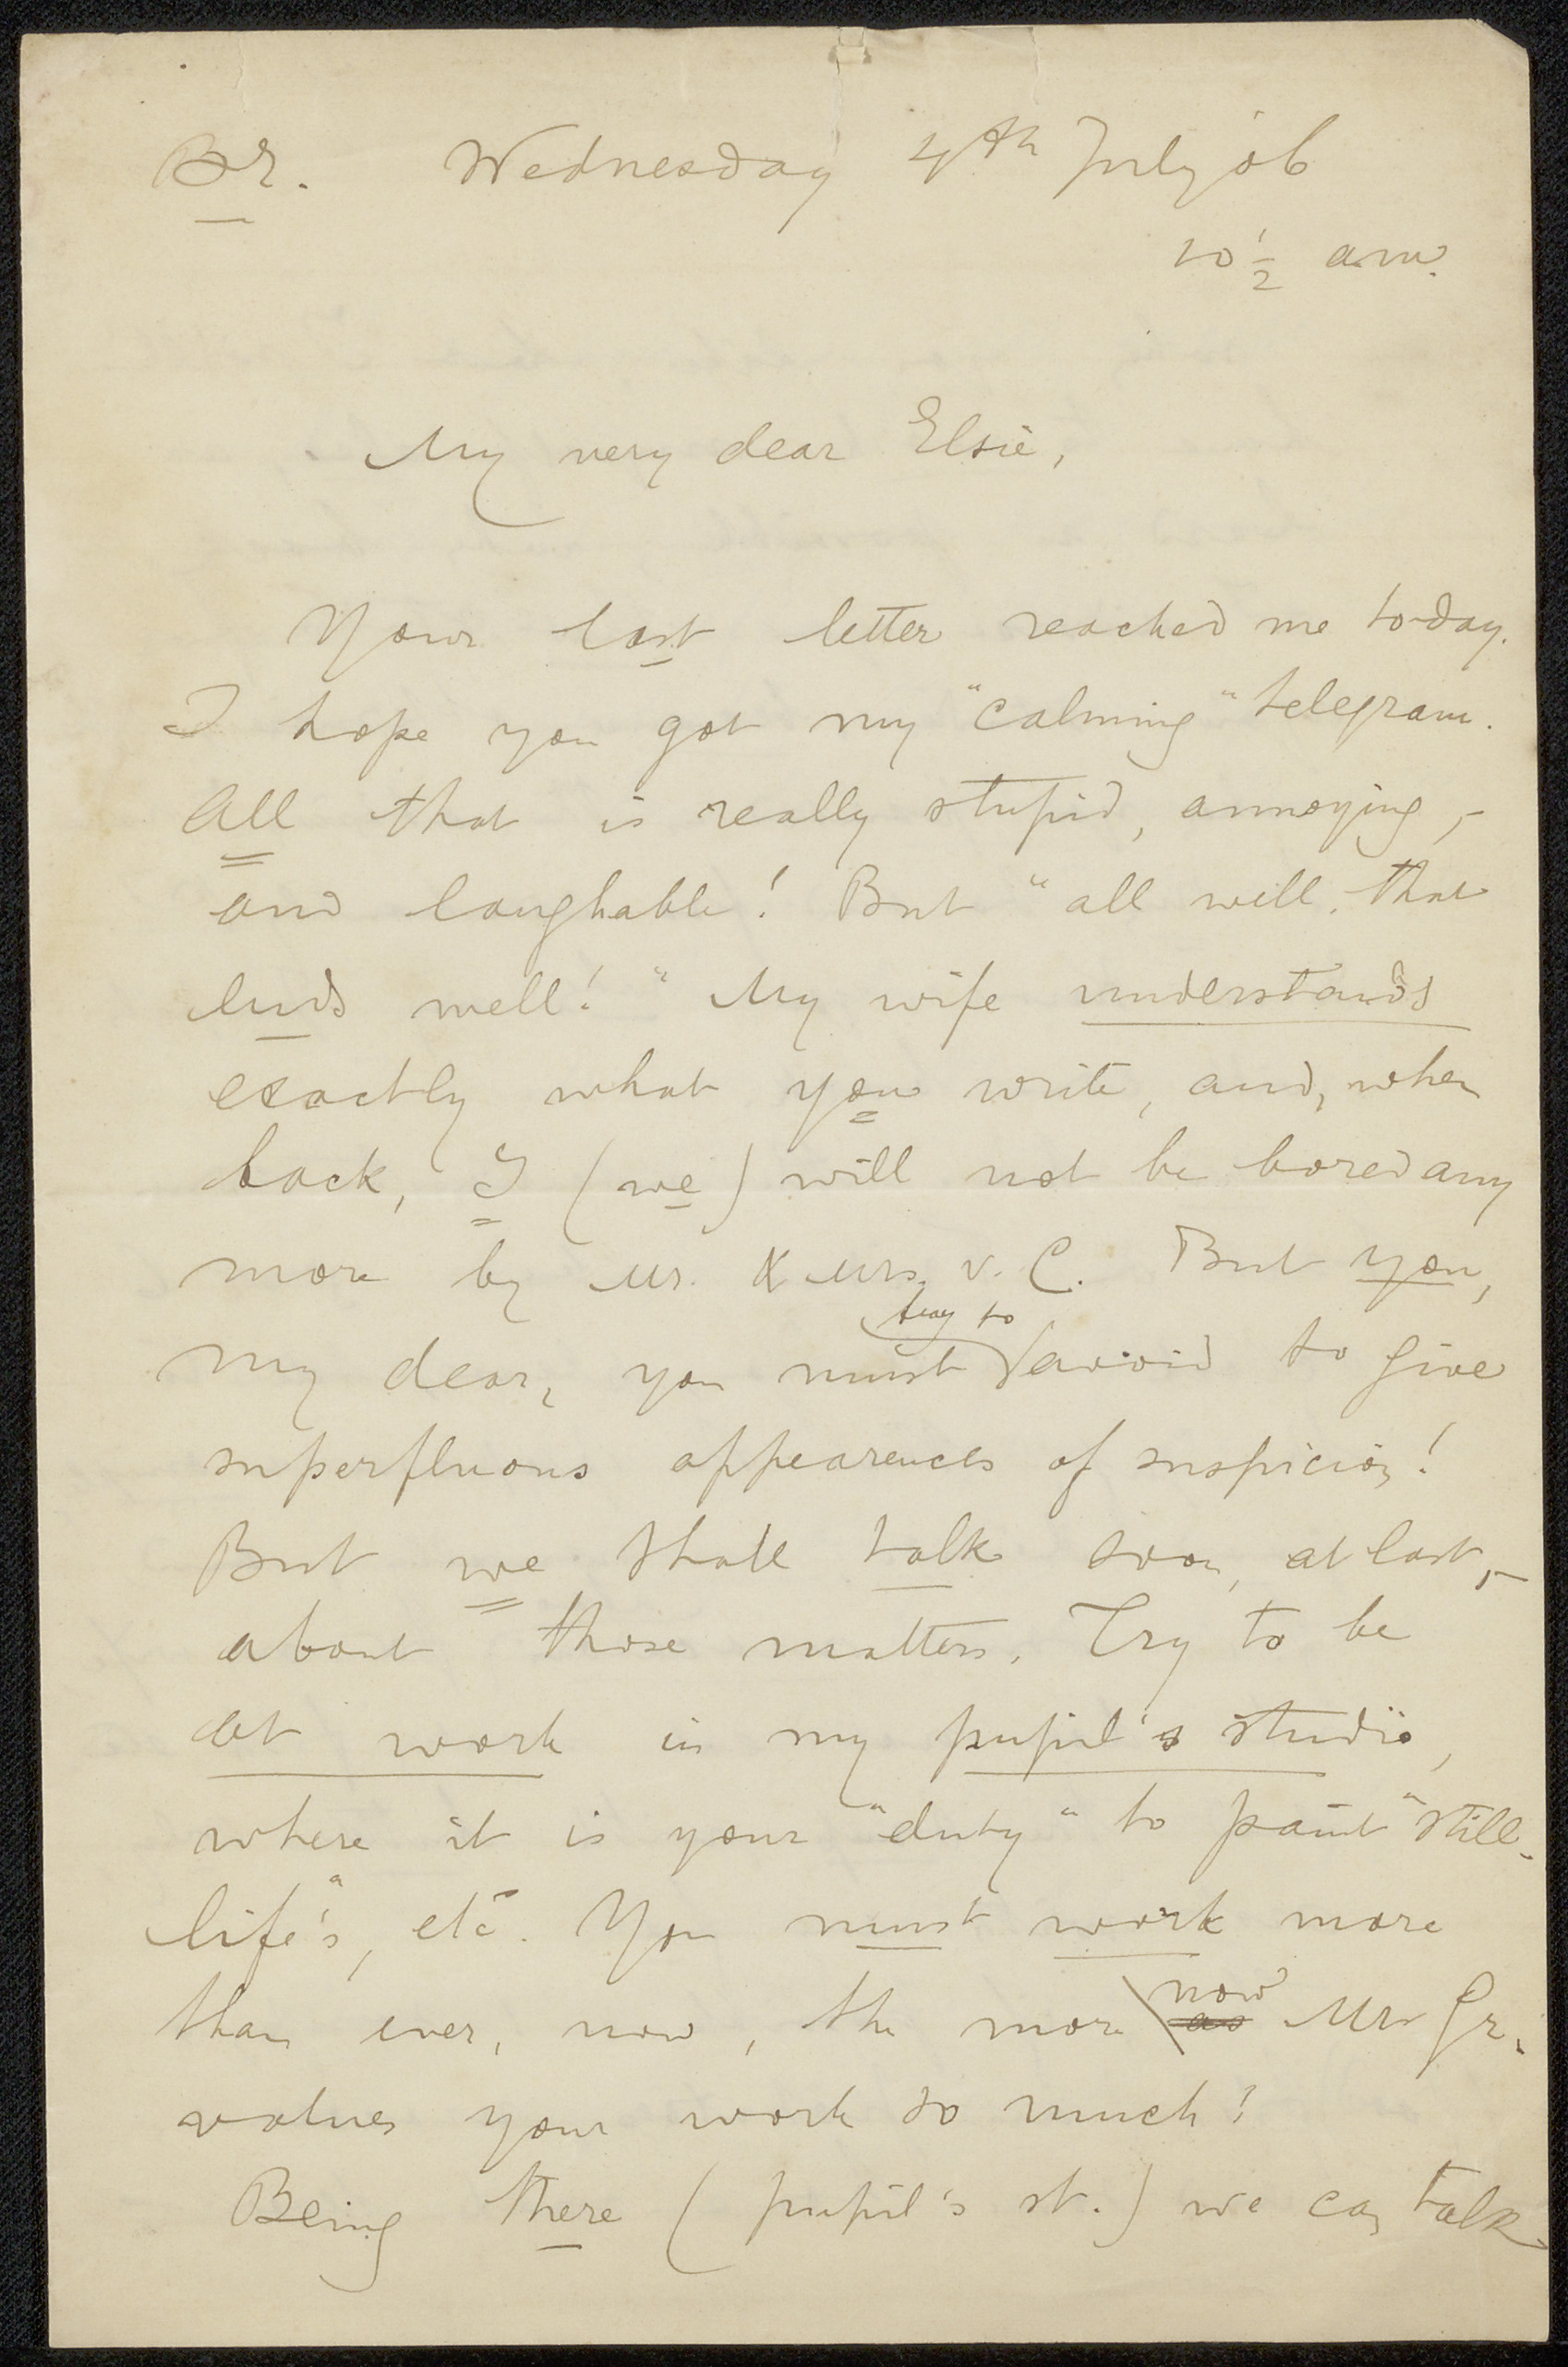 Br. Wednesday 4th July 06
10 1/2 a.m.
My very dear Elsie,
Your last letter reached me to-day.
I hope you got my "calming" telegram.
All that is really stupid, annoying, -
and laughable! But "all well, that
ends well!" My wife understands
exactly what you write, and, when
back, I (we) will not be bored any
more by Mr. & Mrs. v. C. But you,
try to
my dear, you must avoid to give
superfluous appearences of suspicion!
But we shall talk soon, at last, -
about those matters. Try to be
at work in my pupil's studio,
where it is your "duty" to paint "still-
life's", etc. You must work more
than ever, now, the more now as Mr Gr.
values your work so much!
Being there (pupil's st.) we can talk